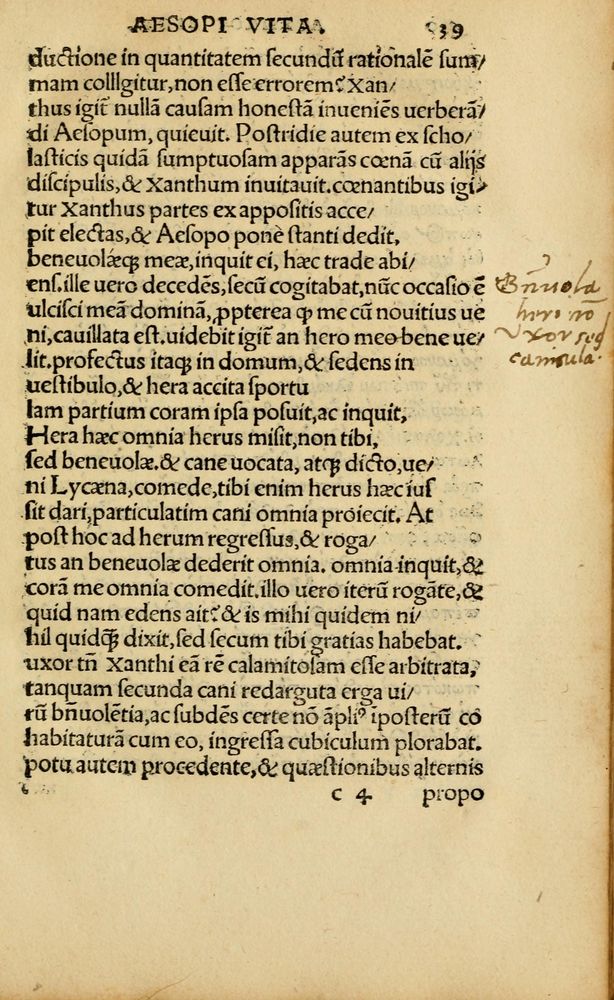 AESOPI VITA. 39
ductione in quantitatem secundū rationalē sum/
mam colllgitur, non esse errorem? Xan/
thus igit̄ nullā causam honestā inueniēs uerberā/
di Aesopum, quieuit. Postridie autem ex scho/
lasticis quidā sumptuosam apparās cœnā cū alijs
discipulis, & Xanthum inuitauit. cœnantibus igi/
tur Xanthus partes ex appositis acce/
pit electas, & Aesopo ponè stanti dedit,
beneuolæq; meæ, inquit ei, hæc trade abi/
ens. ille uero decedēs, secū cogitabat, nūc occasio ē
ulcisci meā dominā, ꝓpterea ꝙ me cū nouitius ue
ni, cauillata est. uidebit igit̄ an hero meo bene ue/
lit. profectus itaq; in domum, & sedens in
uestibulo, & hera accita sportu
lam partium coram ipsa posuit, ac inquit,
Hera hæc omnia herus misit, non tibi,
sed beneuolæ. & cane uocata, atq; dicto, ue/
ni Lycæna, comede, tibi enim herus hæc ius
sit dari, particulatim cani omnia proiecit. At
post hoc ad herum regressus, & roga/
tus an beneuolæ dederit omnia. omnia inquit, &
corā me omnia comedit. illo uero iterū rogāte, &
quid nam edens ait? & is mihi quidem ni/
hil quidq̄; dixit, sed secum tibi gratias habebat.
uxor tn̄ Xanthi eā rē calamitosam esse arbitrata,
tanquam secunda cani redarguta erga ui/
rū bn̄uolētia, ac subdēs certe nō āpliꝰ īposterū co
habitaturā cum eo, ingressa cubiculum plorabat.
potu autem procedente, & quæstionibus alternis
c 4 propo
Bn̄uola
heri nō
vxor sed
canicula.